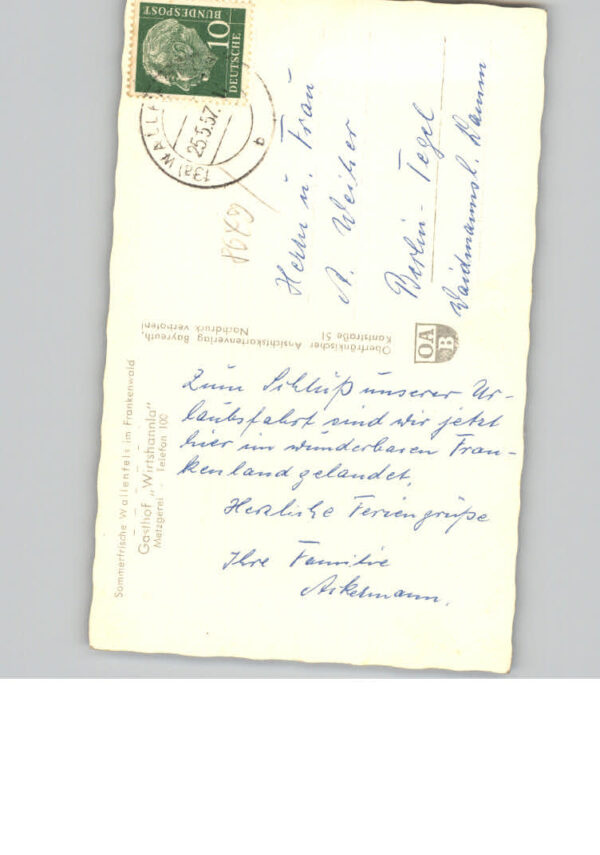 Sommerfrische Wallenfels im Frankenwald
Gasthof „Wirtshannla"
Metzgerei - Telefon 100
Zum Schluß unserer Ur-
laubsfahrt sind wir jetzt
hier im wunderbaren Fran-
kenland gelandet.
Herzliche Feriengrüße
Ihre Familie
Oberfränkischer Ansichtskartenverlag Bayreuth,
Kantstraße 51
Nachdruck verboten!
OA
B
DEUTSCHE
BUNDESPOST
10
(13a) WALLE
25.5.57.
b
Herrn u. Frau
A. Weiher
Berlin-Tegel
Waidmannsl. Damm